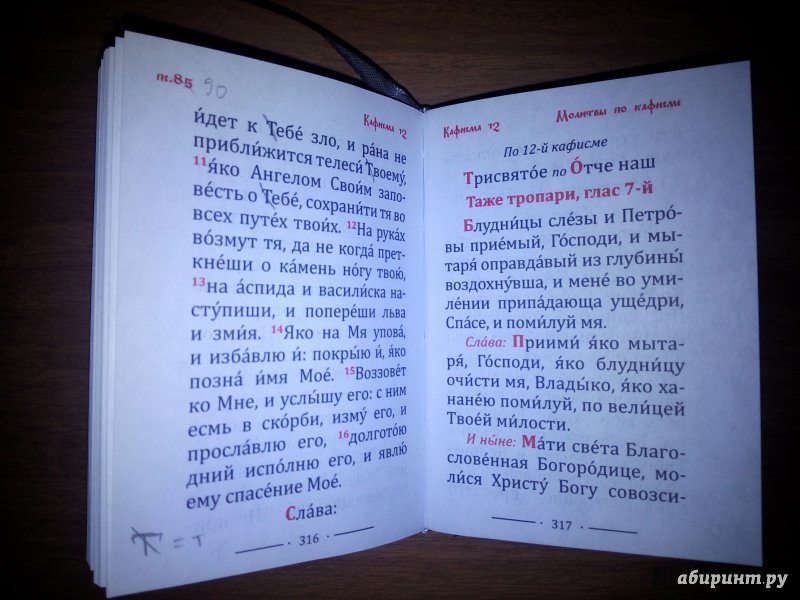 пс.85 90
Кафисма 12
и́дет к Тебе́ зло, и ра́на не
прибли́жится телеси́ Твоему́,
11я́ко Ангелом Свои́м запо-
ве́сть о Тебе́, сохрани́ти тя во
всех путе́х твои́х. 12На рука́х
во́змут тя, да не когда́ прет-
кне́ши о ка́мень но́гу твою́,
13на а́спида и васили́ска на-
сту́пиши, и попере́ши льва
и зми́я. 14Я́ко на Мя упова́,
и изба́влю и́: покры́ю и́, я́ко
позна́ и́мя Мое́. 15Воззове́т
ко Мне, и услы́шу его: с ним
есмь в ско́рби, изму́ его́, и
просла́влю его́, 16долгото́ю
дний испо́лню его́, и явлю́
ему́ спасе́ние Мое́.
Сла́ва:
Т = т
· 316 ·
Кафисма 12
Молитвы по кафисме
По 12-й кафисме
Трисвято́е по О́тче наш
Таже тропари, глас 7-й
Блудни́цы сле́зы и Петро́-
вы прие́мый, Го́споди, и мы-
таря́ оправда́вый из глубины́
воздохну́вша, и мене́ во уми-
ле́нии припа́дающа уще́дри,
Спа́се, и поми́луй мя.
Сла́ва: Приими́ я́ко мыта-
ря́, Го́споди, я́ко блудни́цу
очи́сти мя, Влады́ко, я́ко ха-
нане́ю поми́луй, по вели́цей
Твое́й ми́лости.
И ны́не: Ма́ти све́та Благо-
слове́нная Богоро́дице, мо-
ли́ся Христу́ Бо́гу совозси-
· 317 ·
абиринт.ру